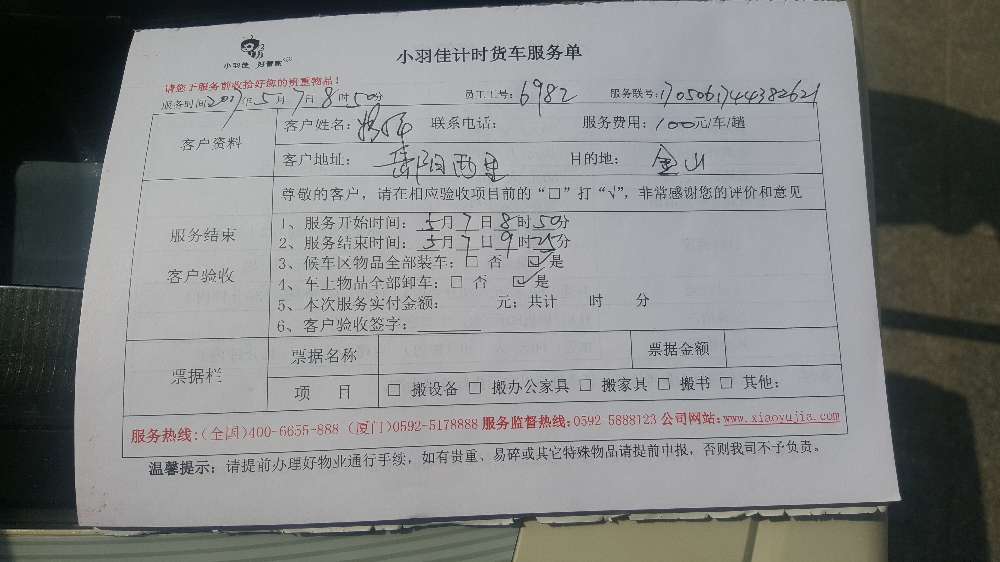 小羽佳 好管家
小羽佳计时货车服务单
请您于服务前收拾好您的贵重物品!
服务时间2017年5月7日8时50分 员工工号:6982 服务联号:17050617443382621
客户资料
客户姓名:杨 联系电话: 服务费用:100元/车/趟
客户地址: 西里 目的地: 金山
服务结束
客户验收
尊敬的客户,请在相应验收项目前的“□”打“√”,非常感谢您的评价和意见
1、服务开始时间:5月7日8时50分
2、服务结束时间:5月7日9时25分
3、候车区物品全部装车:□ 否 ☑ 是
4、车上物品全部卸车:□ 否 ☑ 是
5、本次服务实付金额: 元;共计 时 分
6、客户验收签字:
票据栏
票据名称 票据金额
项 目 □ 搬设备 □ 搬办公家具 □ 搬家具 □ 搬书 □ 其他:
服务热线:(全国)400-6655-888 (厦门)0592-5178888 服务监督热线:0592 5888123 公司网站:www.xiaoyujia.com
温馨提示:请提前办理好物业通行手续,如有贵重、易碎或其它特殊物品请提前申报,否则我司不予负责。